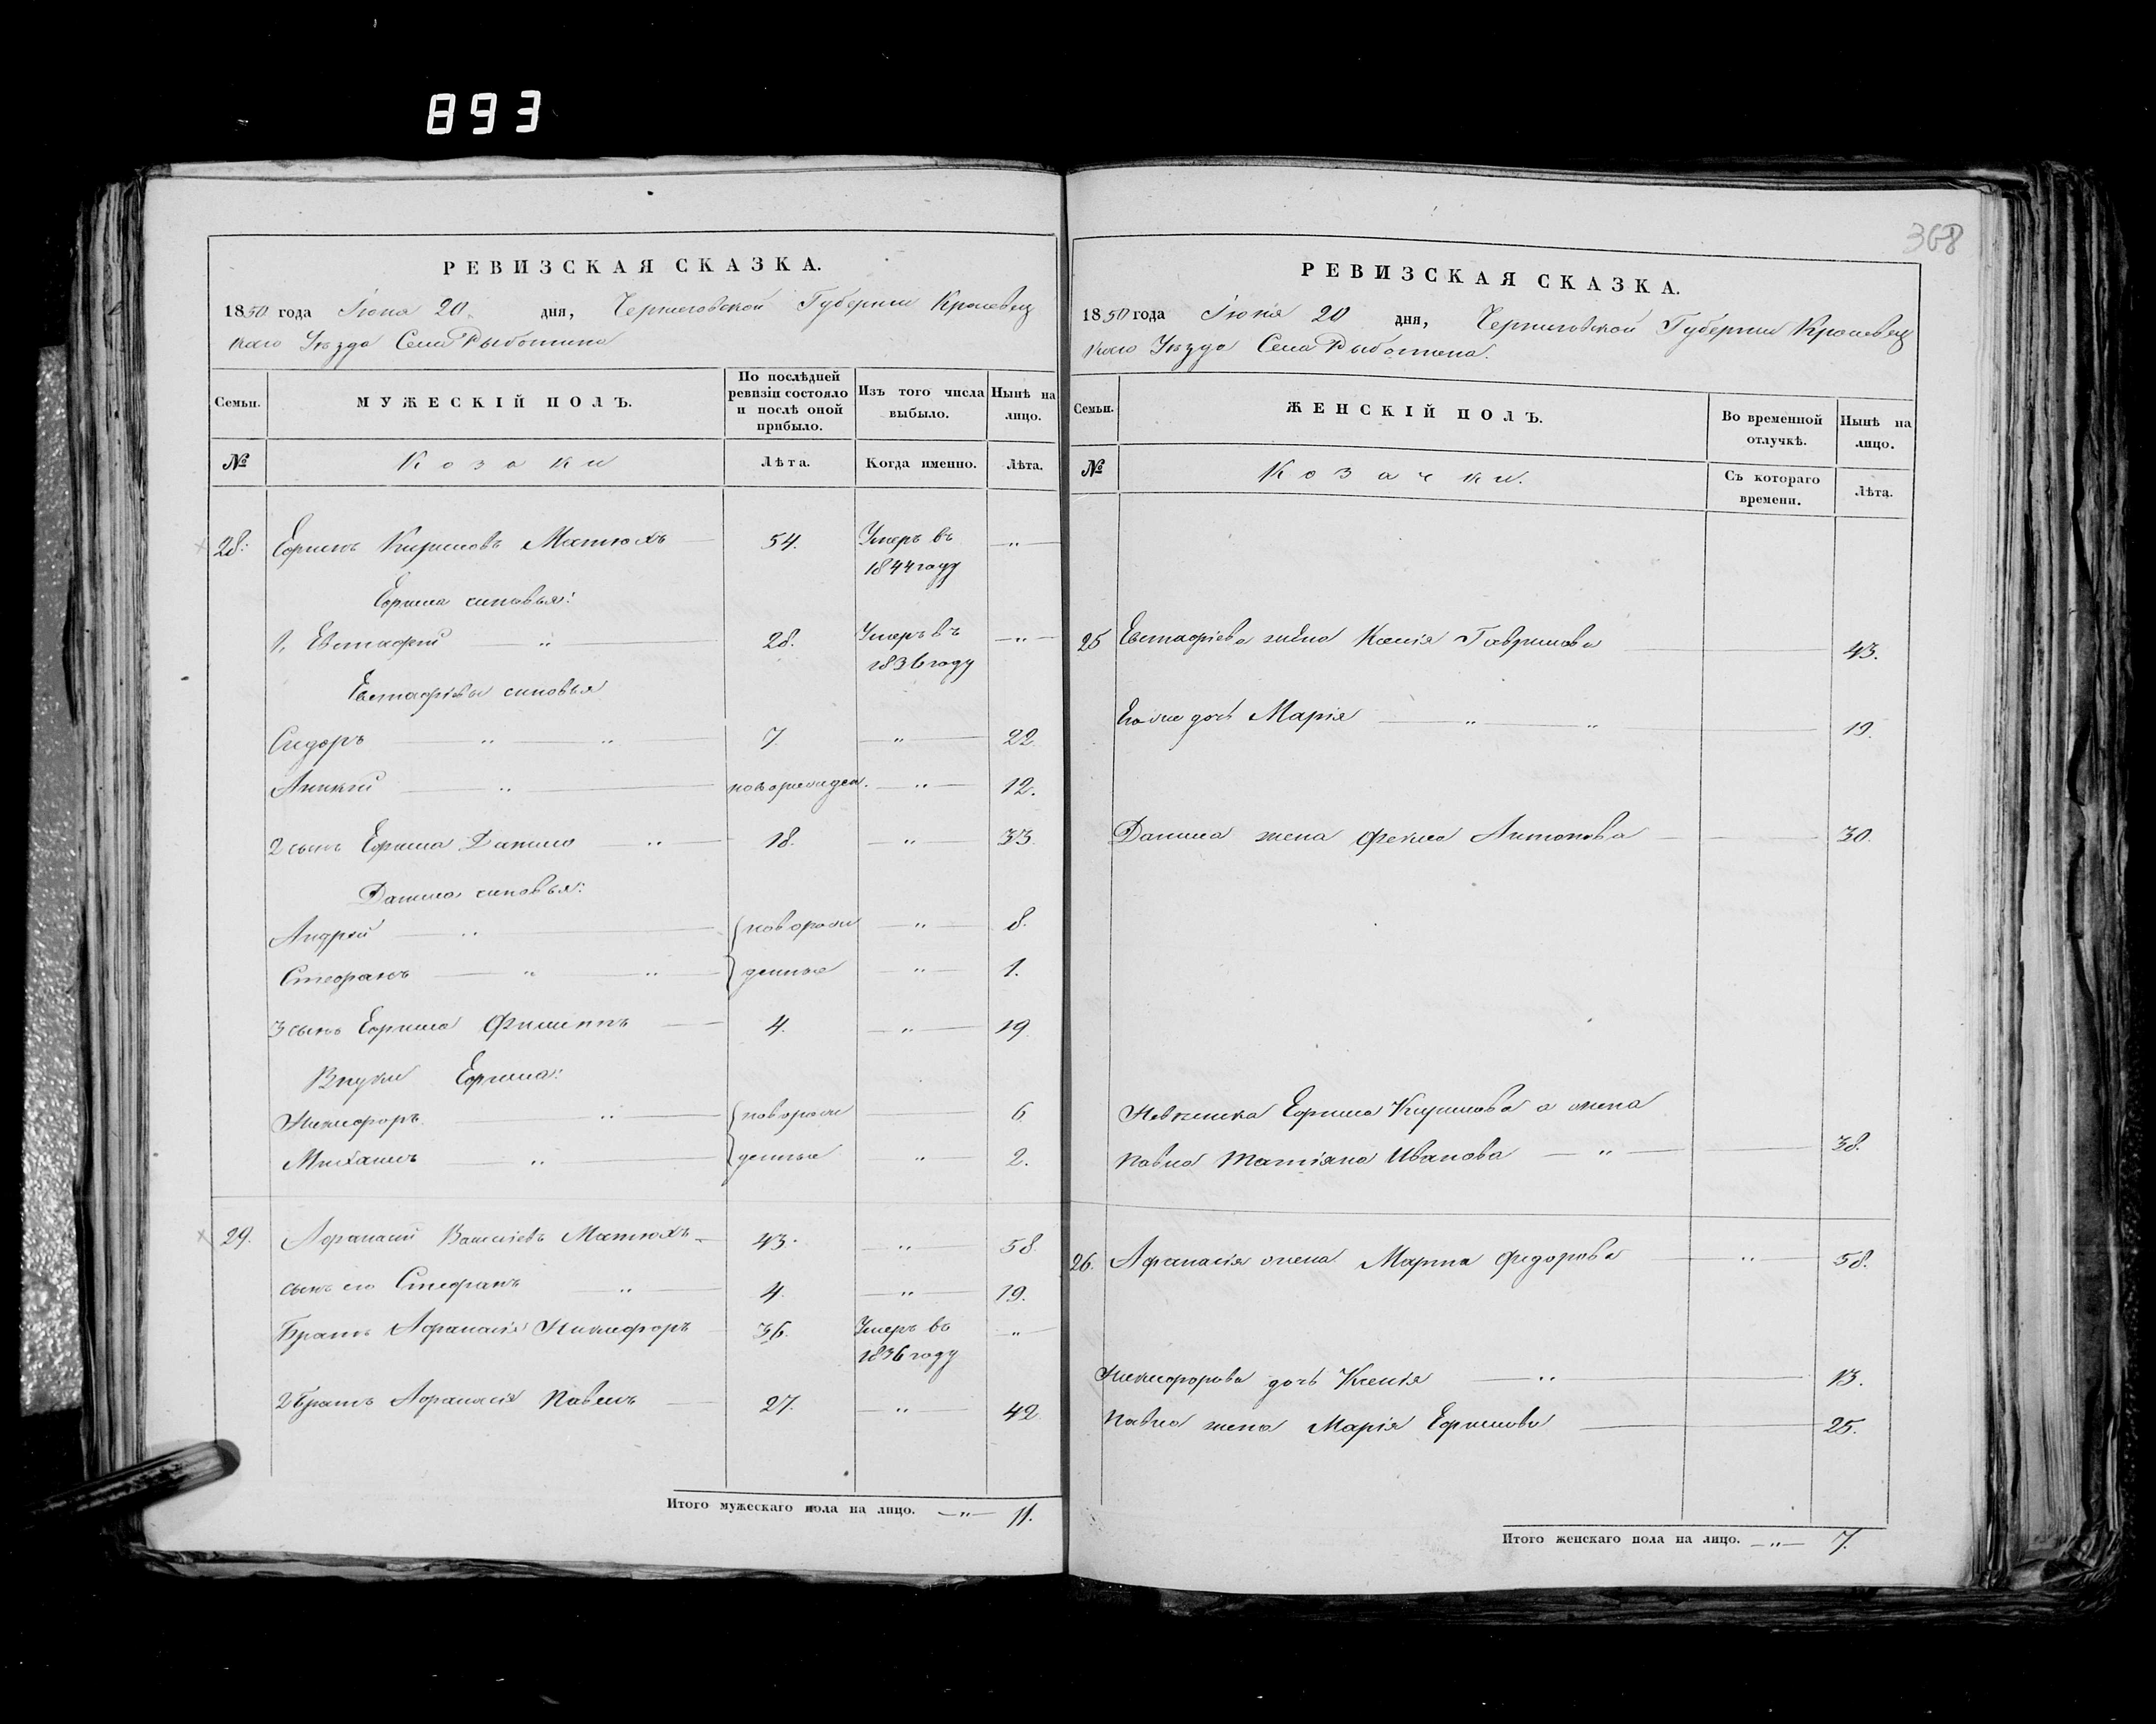 893
368
РЕВИЗСКАЯ СКАЗКА.
1850 года Іюня 20 дня, Черниговской Губерніи Кролевец
каго Уѣзда Села Рыботина
Семьи. МУЖЕСКІЙ ПОЛЪ. По послѣдней ревизіи состояло и послѣ оной прибыло. Изъ того числа выбыло. Нынѣ на лицо.
№ Козаки Лѣта. Когда именно. Лѣта.
28. Ефимъ Кириловъ Матюхъ 54. Умеръ въ 1844 году "
Ефима сыновья:
1, Евстафій " 28. Умеръ въ 1836 году "
Евстафіевы сыновья
Сидоръ " " 7. " 22
Аникій " новорожден. " 12.
2 сынъ Ефима Данило " 18. " 33
Данила сыновья:
Андрей " новорож " 8.
Стефанъ " " денные " 1.
3 сынъ Ефима Филиппъ 4. " 19
Внуки Ефима:
Никифоръ " новорож 6
Михаилъ " денные " 2.
29. Афанасий Василіевъ Матюхъ 43. " 58
сынъ его Стефанъ " 4. " 19.
Братъ Афанасія Никифоръ 36. Умеръ въ 1836 году "
2 братъ Афанасія Павелъ 27. " 42
Итого мужескаго пола на лицо. " 11.
РЕВИЗСКАЯ СКАЗКА.
1850 года Іюня 20 дня, Черниговской Губерніи Кролевец
каго Уѣзда Села Рыботина.
Семьи. ЖЕНСКІЙ ПОЛЪ. Во временной отлучкѣ. Нынѣ на лицо.
№ Козачки. Съ котораго времени. Лѣта.
25 Евстафіева жена Ксенія Гаврилова 43.
Его же дочь Марія " " 19.
Данила жена Фекла Антонова 30.
Невѣстка Ефима Кирилова а жена
Павла Татіяна Иванова " 38.
26. Афанасія жена Марта Федорова " 58.
Никифорова дочь Ксенія " 13.
Павла жена Марія Ефимова 25.
Итого женскаго пола на лицо. " 7.